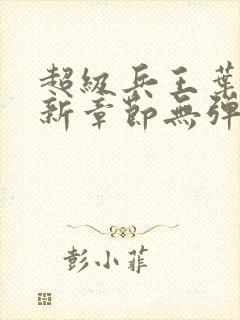 超級兵王葉
新章節無彈
彭小菲